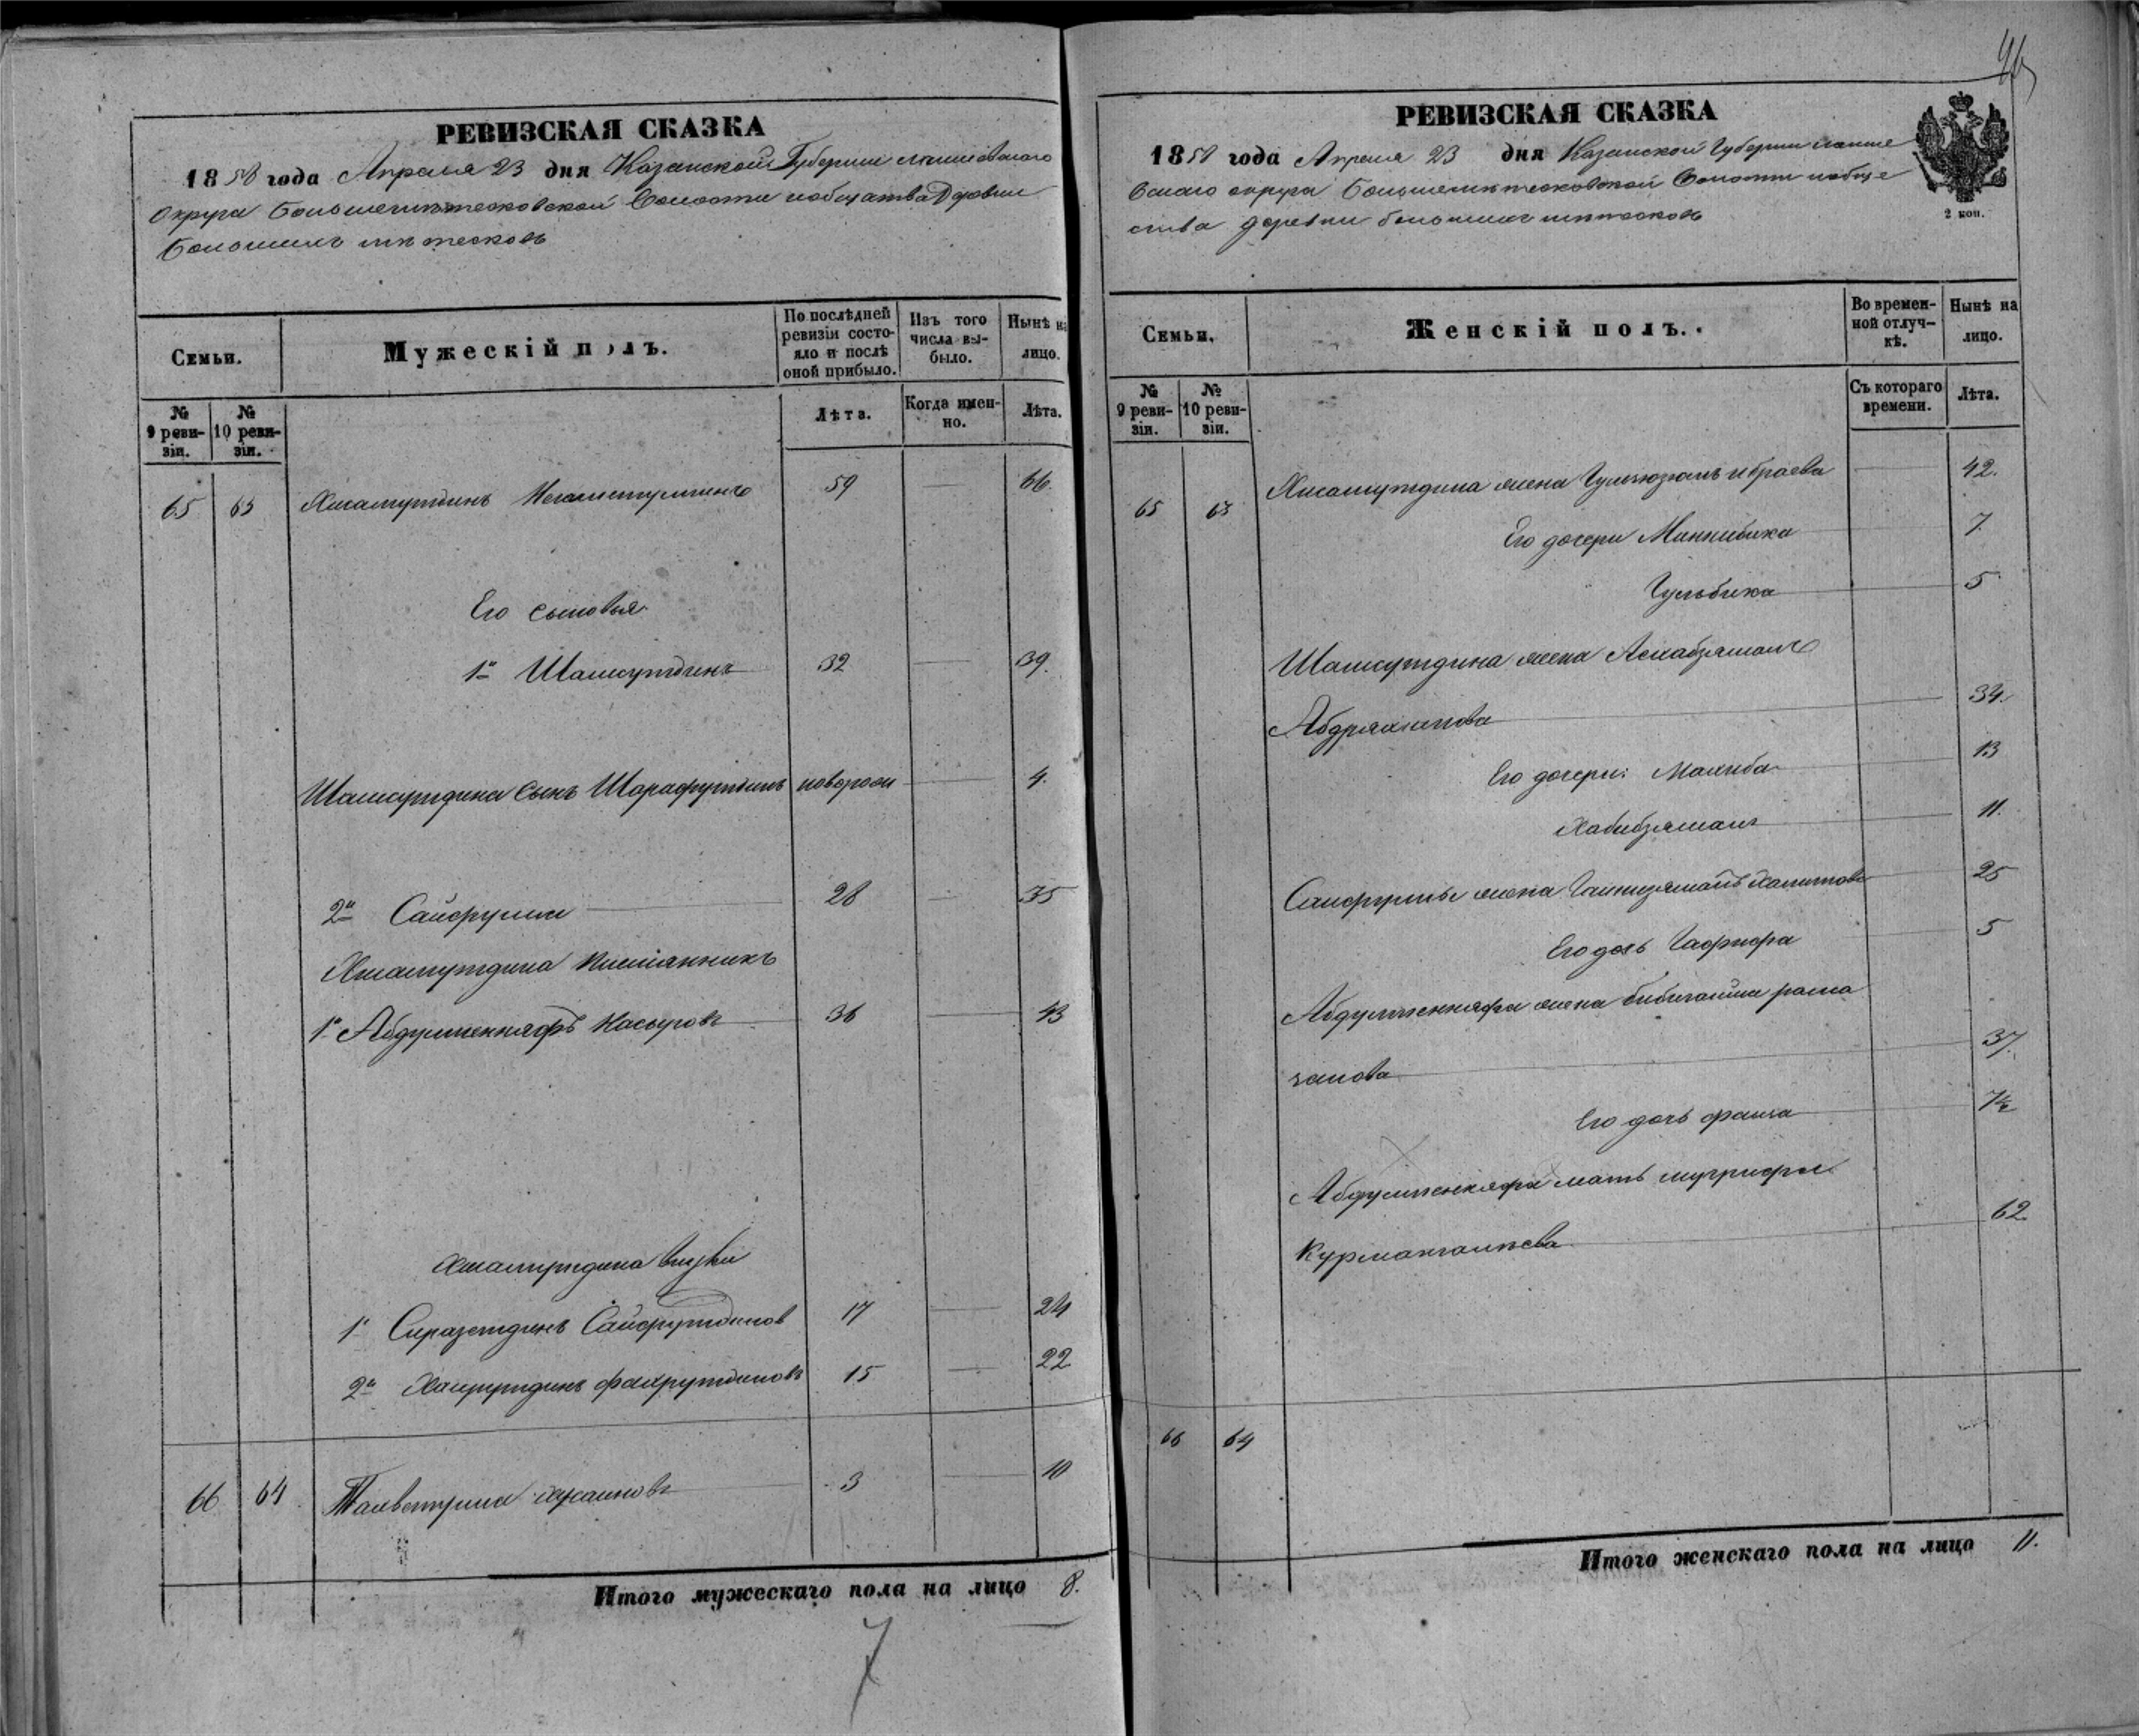 46
РЕВИЗСКАЯ СКАЗКА
1858 года Апреля 23 дня Казанской Губернии Лаишевскаго
округа Большеметесковской волости и общества Деревни
Большихъ метесковъ
Семьи.
Мужескій полъ.
По послѣдней ревизіи состояло и послѣ оной прибыло.
Изъ того числа выбыло.
Нынѣ на лицо.
№ 9 ревизіи.
№ 10 ревизіи.
Лѣта.
Когда именно.
Лѣта.
65 63 Хисамутдинъ 59 — 66.
Его сыновья
1й Шамсутдинъ 32 — 39.
Шамсутдина сынъ Шарафутдинъ новорож — 4.
2й Сайфулла 28 — 35
Хисамутдина племянникъ
1й Абдулменнафъ Насыровъ 36 — 43
Хисамутдина внуки
1й Сиразетдинъ Сайфутдинов 17 — 24
2й фахрутдиновъ 15 — 22
66 64 3 — 10
Итого мужескаго пола на лицо 8.
7
РЕВИЗСКАЯ СКАЗКА
1858 года Апреля 23 дня Казанской Губернии Лаише
вскаго округа Большеметесковской волости и обще
ства деревни большихъ метесковъ
2 коп.
Семьи.
Женскій полъ.
Во временной отлучкѣ.
Нынѣ на лицо.
№ 9 ревизіи.
№ 10 ревизіи.
Съ котораго времени.
Лѣта.
65 63 Хисамутдина жена Ибраева — 42.
Его дочери Миннибика — 7.
Гульбика — 5
Шамсутдина жена
— 34.
Его дочери: Махиба — 13
Хабибзямалъ — 11.
Сайфуллы жена Халитова — 25
Его дочь Гафифа — 5
Абдулменнафа жена рама
занова — 37.
Его дочь фаиза — 7½
Абдулменнафа мать
Курмангалиева — 62
66 64
Итого женскаго пола на лицо 11.